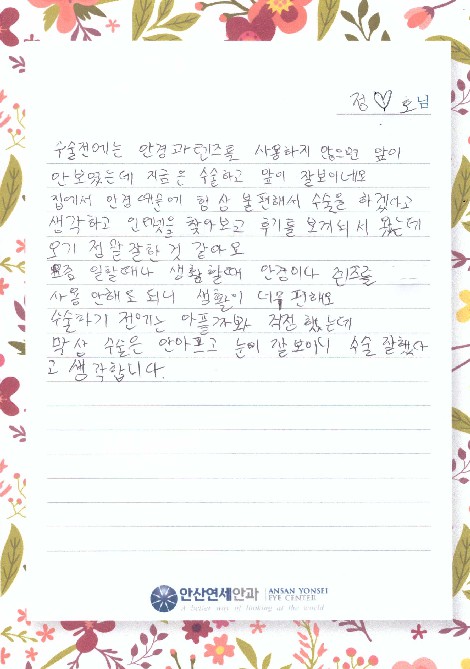 정♡호님
수술전에는 안경과 렌즈를 사용하지 않으면 앞이
안보였는데 지금은 수술하고 앞이 잘보이네요
집에서 안경때문에 항상 불편해서 수술을 하겠다고
생각하고 인터넷을 찾아보고 후기들 보게되서 왔는데
오기 정말 잘한 것 같아요
요즘 일할때나 생활할때 안경이나 렌즈를
사용 안해도 되니 생활이 너무 편해요
수술하기 전에는 아플까봐 걱정했는데
막상 수술은 안아프고 눈이 잘보이니 수술 잘했다
고 생각합니다.
안산연세안과 ANSAN YONSEI EYE CENTER
A better way of looking at the world